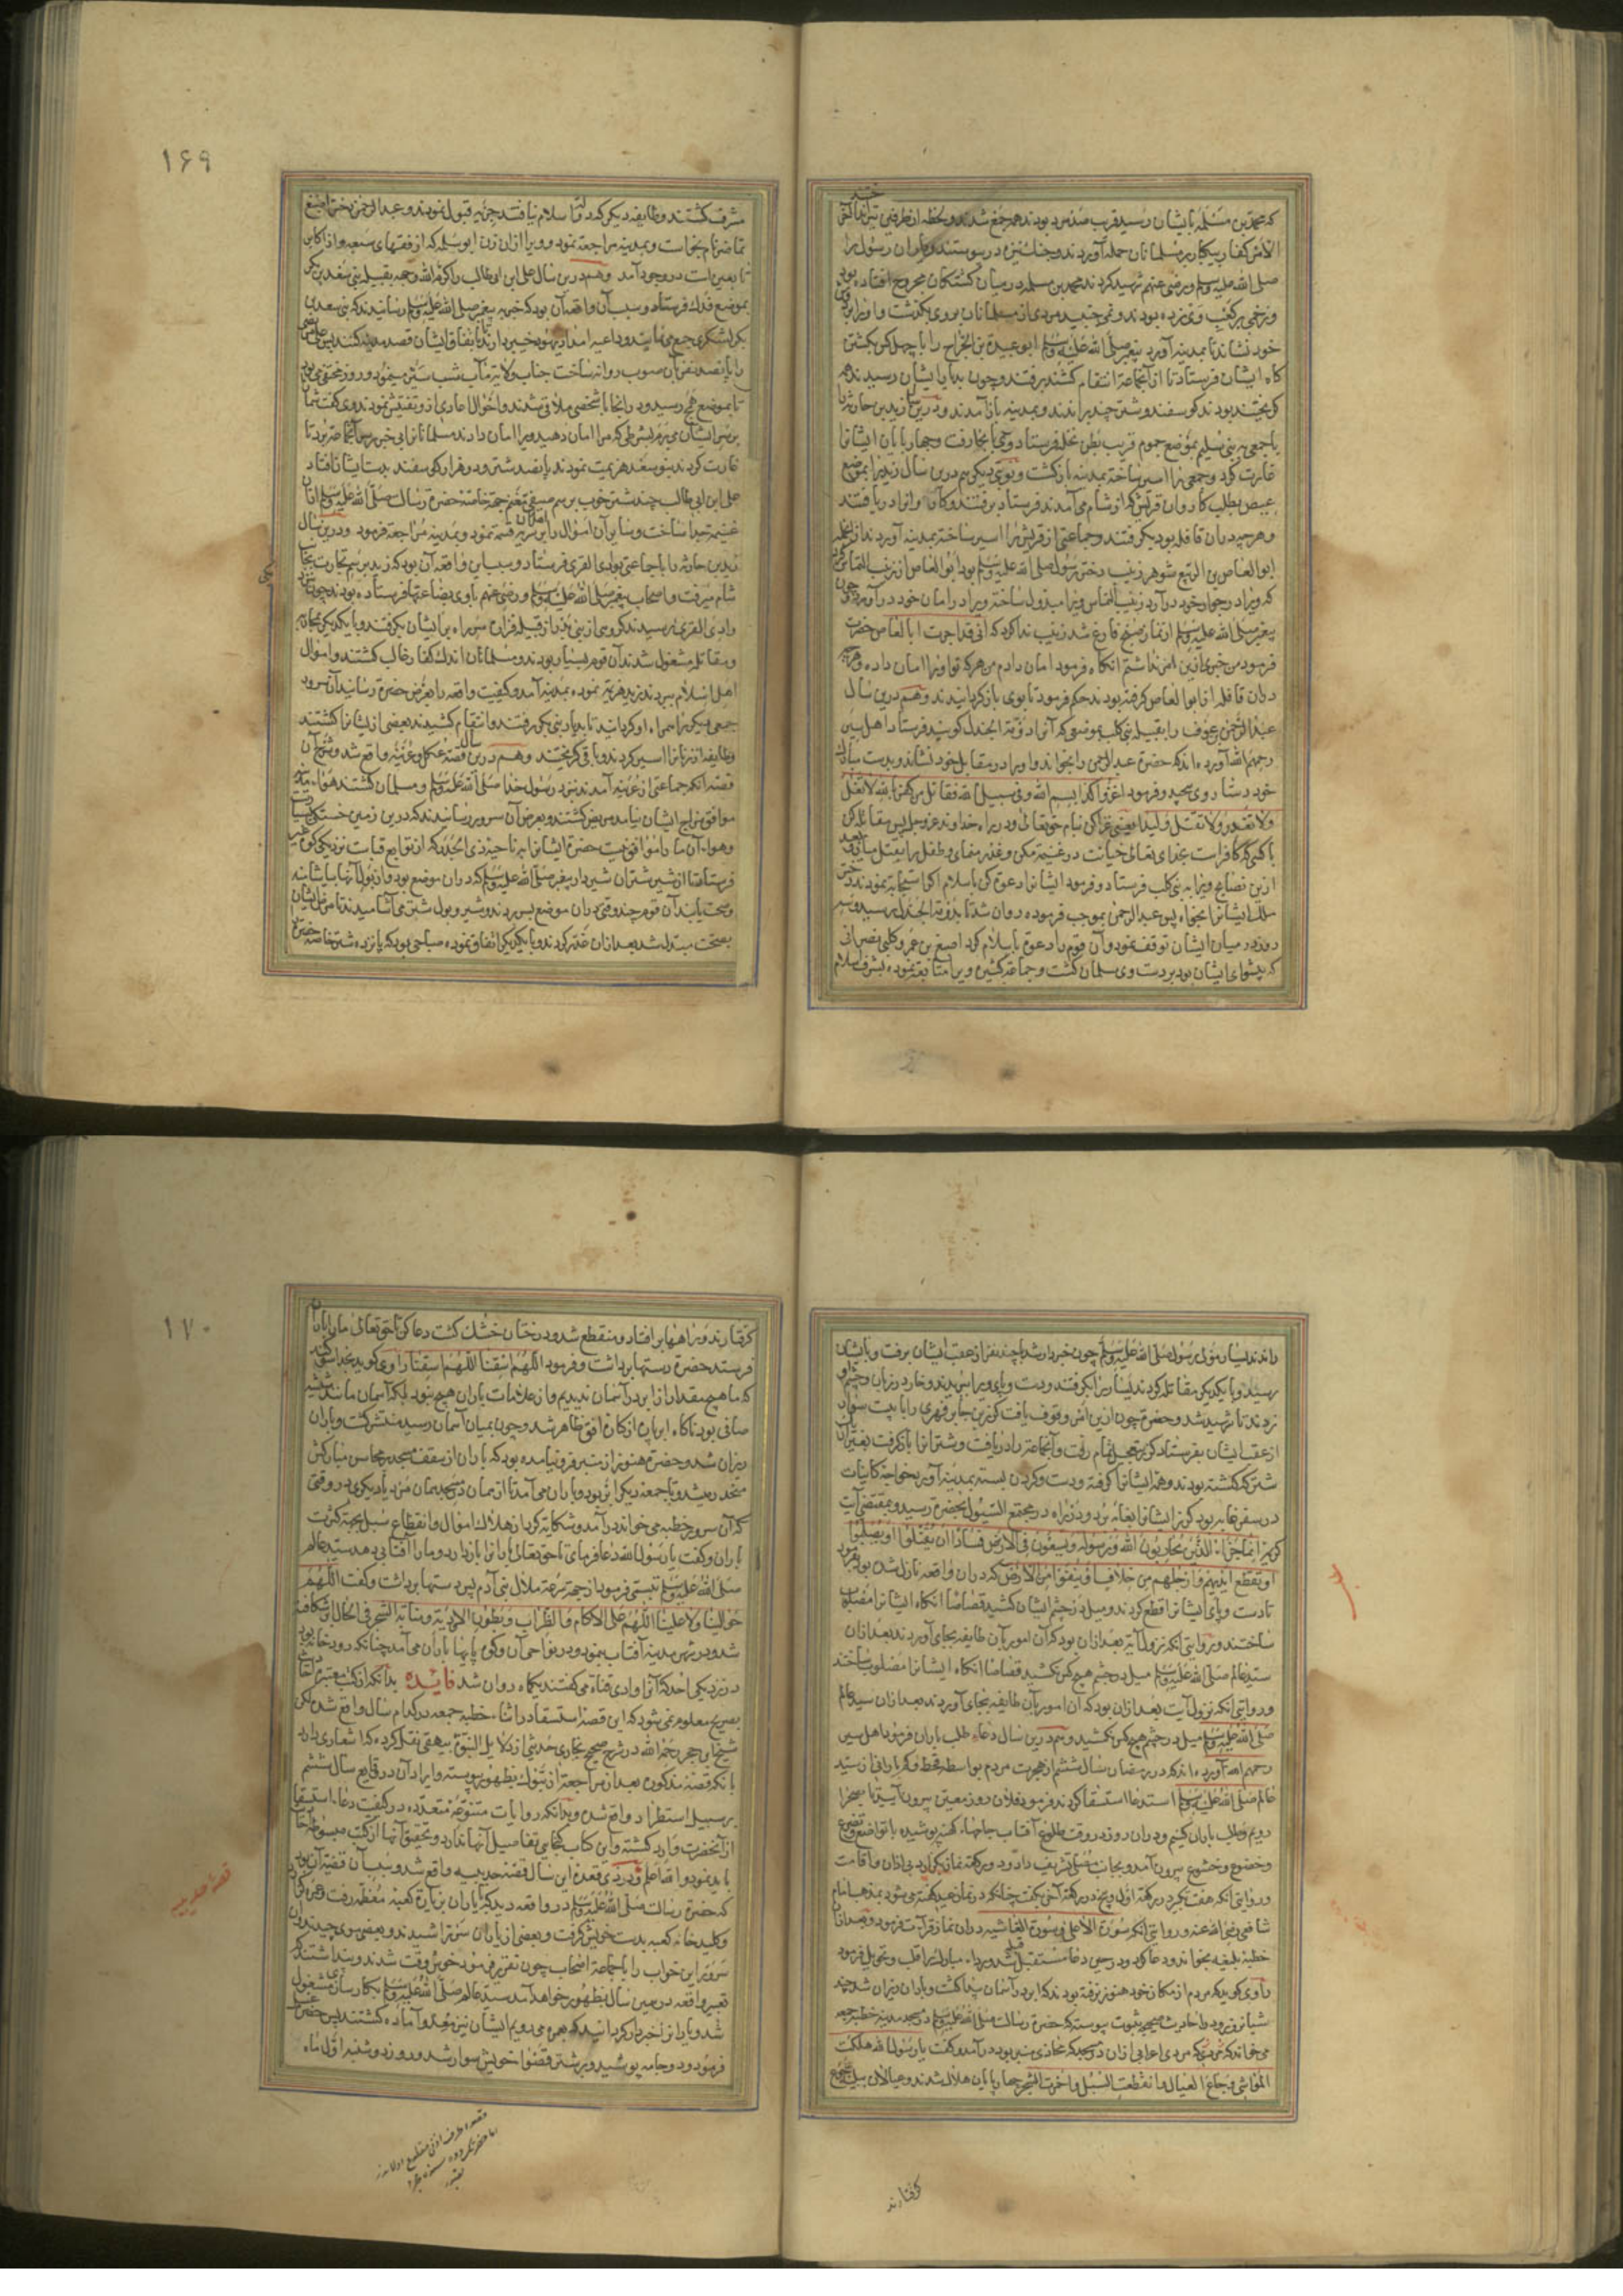 که محمد بن مسلمه بایشان رسید قریب صد مرد بودند همه جمع شدند و لحظه از طرفین تیر انداختند
الامر کفار بیکبار بر مسلمانان حمله آوردند و جنگ نیزه در پیوستند و یاران رسول را
صلی الله علیه وسلم و رضی عنهم شهید کردند محمد بن مسلمه در میان کشتکان مجروح افتاده بود
و زخمی بر کعب وی زده بودند و نمی جنبید مردی از مسلمانان بر وی بگذشت و او را بر دوش
خود نشاند تا بمدینه آورد پیغمبر صلی الله علیه وسلم ابو عبیدة بن الجراح را با چهل کس بکشتن
کاه ایشان فرستاد تا از آنجماعة انتقام کشند برفتند و چون بدیار ایشان رسیدند همه
کریخته بودند کوسفند و شتر چند براندند و بمدینه باز آمدند و درین سال زید بن حارثه را
با جمعی به بنی سلیم بموضع جموم قریب بطن نخله فرستاد وی بانجا رفت و چهار پایان ایشانرا
غارت کرد و جمعی را اسیر ساخته بمدینه بازکشت و نوبتی دیکر هم درین سال زید را بموضع
عیص بطلب کاروان قریش که از شام می آمدند فرستاد برفتند و کاروانرا دریافتند
و هر چه دران قافله بود بکرفتند و جماعتی از قریش را اسیر ساخته بمدینه آوردند از انجمله
ابو العاص بن الربیع شوهر زینب دختر رسول صلی الله علیه وسلم بود ابو العاص از زینب التماس کرد
که ویرا در جوار خود درآرد زینب التماس ویرا مبذول ساخته ویرا در امان خود درآورد چون
پیغمبر صلی الله علیه وسلم از نماز صبح فارغ شد زینب ندا کرد که انی قد اجرت ابا العاص حضرت
فرمود من خبری ازین امر نداشتم انکاه فرمود امان دادم من هر که تو او را امان داده و هر چه
دران قافله از ابو العاص کرفته بودند حکم فرمود تا بوی بازکردانیدند و هم درین سال
عبد الرحمن بن عوف را بقبیله بنی کلب بموضعی که آنرا دومة الجندل کویند فرستاد اهل سیر
رحمهم الله آورده اند که حضرة عبد الرحمن را بخواند و او را در مقابل خود نشاند و بدست مبارک
خود دستار وی پیچید و فرمود اغزوا کذا بسم الله وفی سبیل الله فقاتل من کفر بالله لا تغل
ولا تغدر ولا تقتل ولیدا یعنی غزا کن بنام حق تعالی و در راه خداوند عز وجل پس مقاتله کن
با کسی که کافر است بخدای تعالی خیانت در غنیمة مکن و غدر منمای و طفل را بقتل میار و بعد
ازین نصایح ویرا به بنی کلب فرستاد و فرمود ایشانرا دعوة کن باسلام اکر استجابة نمودند دختر
ملک ایشانرا بخواه پس عبد الرحمن بموجب فرموده روان شد تا بدومة الجندل رسید و سه
روز در میان ایشان توقف نمود و آن قوم را دعوة باسلام کرد اصبغ بن عمرو کلبی نصرانی
که پیشوای ایشان بود بر دست وی مسلمان کشت و جماعة کثیره ویرا متابعة نموده بشرف اسلام
۱۶۹
مشرف کشتند و طایفه دیکر که دولت اسلام نیافتند جزیه قبول نمودند و عبد الرحمن دختر اصبغ
تماضر نام بخواست و بمدینه مراجعة نمود و ویرا ازان زن ابو سلمه که از فقهای سبعه و از اکابر
تابعین است در وجود آمد و هم درین سال علی ابن ابی طالب را کرم الله وجهه بقبیله بنی سعد بن بکر
بموضع فدک فرستاد و سبب آن واقعه آن بود که خبر به پیغمبر صلی الله علیه وسلم رسانیدند که بنی سعد بن
بکر لشکری جمع می نمایند و داعیه امداد یهود خیبر دارند تا باتفاق ایشان قصد مدینه کنند پس علی مرتضی
را با صد نفر آن صوب روانه ساخت جناب ولایة مآب شب سیر مینمود و روز مختفی می بود
تا بموضع همج رسید و در انجا با شخصی ملاقی شدند و احوال اعادی ازو تفتیش نمودند وی کفت شما را
بر سر ایشان می برم بشرطی که مرا امان دهید ویرا امان دادند مسلمانانرا بی خبر بر سر آنجماعة برد تا
غارت کردند بنو سعد هزیمت نمودند پانصد شتر و دو هزار کوسفند بدست ایشان افتاد
علی ابن ابی طالب چند شتر خوب برسم صفی بجهة خاصه حضرة رسالت صلی الله علیه وسلم ازان
غنیمه جدا ساخت و سایر آن اموال را بر اهل آن سریه قسمة نمود و بمدینه مراجعة فرمود و درین سال
زید بن حارثه را با جماعتی بوادی القری فرستاد و سبب این واقعه آن بود که زید برسم تجارت بجانب
شام میرفت و اصحاب پیغمبر صلی الله علیه وسلم و رضی عنهم با وی بضاعتها فرستاده بودند چون نزدیک
وادی القری رسیدند کروهی از بنی بدر از قبیله فزاره سر راه بر ایشان بکرفتند و با یکدیکر بمحاربه
و مقاتله مشغول شدند آن قوم بسیار بودند و مسلمانان اندک کفار غالب کشتند و اموال
اهل اسلام ببردند زید هزیمة نموده بمدینه آمد و کیفیت واقعه را بعرض حضرة رسانید آن سرور
جمعی دیکر را همراه او کردانید تا بدیار بنی بدر رفتند و انتقام کشیدند بعضی از ایشانرا کشتند
و طایفه از زنانرا اسیر کردند و باقی کریختند و هم درین سال قصه عکل و عرینه واقع شد و شرح آن
قصه آنکه جماعتی از عرینه آمدند نزد رسول خدا صلی الله علیه وسلم و مسلمان کشتند هواء مدینه
موافق مزاج ایشان نیامد مریض کشتند و بعرض آن سرور رسانیدند که درین زمین خستکی بسیارست
و هواء آن ما را موافق نیست حضرة ایشانرا به ناحیه ذی الجدر که از توابع قباست نزدیک کوه عیر
فرستاد تا از شیر شتران شیردار پیغمبر صلی الله علیه وسلم که دران موضع بود و از بول آنها بیاشامند
و صحت یابند آن قوم چند وقتی دران موضع بسر بردند و شیر و بول شتر می آشامیدند تا مرض ایشان
بصحت مبتدل شد بعد ازان غدر کردند و با یکدیکر اتفاق نموده صباحی بود که پانزده شتر خاصه حضرة
راندند یسار مولی رسول صلی الله علیه وسلم چون خبردار شد با چند نفر از عقب ایشان برفت و بایشان
رسید و با یکدیکر مقاتله کردند یسار را بکرفتند و دست و پای ویرا ببریدند و خار در زبان و چشم او
زدند تا شهید شد و حضرة چون ازین امر وقوف یافت کرز بن جابر فهری را با بیست سوار
از عقب ایشان بفرستاد کرز بتعجیل تمام رفت و آنجماعة را دریافت و شترانرا بازکرفت بغیر ازان
شتر که کشته بودند و همه ایشانرا کرفته و دست و کردن بسته بمدینه آورد خواجه کاینات
در سفر غابه بود کرز ایشانرا بغابه برد و در راه در مجتمع السیول بحضرة رسید و بمقتضی آیت
کریمه انما جزاء الذین یحاربون الله ورسوله ویسعون فی الارض فسادا ان یقتلوا او یصلبوا
او تقطع ایدیهم وارجلهم من خلاف او ینفوا من الارض که دران واقعه نازل شده بود بفرمود
تا دست و پای ایشانرا قطع کردند و میل در چشم ایشان کشید قصاصا انکاه ایشانرا مصلوب
ساختند و روایتی آنکه نزول آیة بعد ازان بود که آن امور بآن طایفه بجای آوردند بعد ازان
سید عالم صلی الله علیه وسلم میل در چشم هیچ کس نکشید قصاصا انکاه ایشانرا مصلوب ساختند
و روایتی آنکه نزول آیت بعد ازان بود که آن امور بآن طایفه بجای آوردند بعد ازان سید عالم
صلی الله علیه وسلم میل در چشم هیچ کس نکشید و هم درین سال دعاء طلب باران فرمود اهل سیر
رحمهم الله آورده اند که در رمضان سال ششم از هجرت مردم بواسطه قحط و کم بارانی از سید
عالم صلی الله علیه وسلم استدعا استسقا کردند فرمود فلان روز معین بیرون آیید تا بصحرا
رویم و طلب باران کنیم و دران روز در وقت طلوع آفتاب جامهاء کهنه پوشیده با تواضع و تضرع
و خضوع و خشوع بیرون آمد و بجانب مصلی تشریف داد و دو رکعة نماز بکزارد بی اذان و اقامت
و روایتی آنکه هفت تکبیر در رکعة اول و پنج در رکعة آخر بکفت چنانکه در نماز عید کفته می شود بمذهب امام
شافعی رضی الله عنه و روایتی آنکه سورة الاعلی و سورة الغاشیه دران نماز قرآءت فرمود و بعد ازان
خطبه بلیغه بخواند و دعا کرد و در حین دعا مستقبل قبله شد و رداء مبارک را قلب و تحویل فرمود
راوی کوید که مردم از مکان خود هنوز نرفته بودند که ابر در آسمان پیدا کشت و باران ریزان شد چند
شبانروز و در احادیث صحیحه بثبوت پیوسته که حضرة رسالت صلی الله علیه وسلم در مسجد مدینه خطبه جمعه
می خواند که مردی اعرابی ازان در مسجد که محاذی منبر بود درآمد و کفت یا رسول الله هلکت
المواشی وجاع العیال وانقطعت السبل واحمرت الشجر چهارپایان هلاک شدند و عیالان ببلیه جوع
کرفتارند
۱۷۰
کرفتارند و راهها برافتاد و منقطع شد و درختان خشک کشت دعا کن تا حق تعالی ما را باران
فرستد حضرة دستها برداشت و فرمود اللهم اسقنا اللهم اسقنا راوی کوید بخدا سوکند
که ما هیچ مقدار از ابر در آسمان ندیدیم و از علامات باران هیچ نبود بلکه آسمان مانند شیشه
صافی بود ناکاه ابر پاره از کنار افق ظاهر شد و چون بمیان آسمان رسید منتشر کشت و باران
ریزان شد و حضرة هنوز از منبر فرو نیامده بود که باران از سقف مسجد بر محاسن مبارکش
منحدر میشد و تا جمعه دیکر اثر بود و باران می آمد تا از همان در مسجد همان مرد یا دیکری در وقتی
که آن سرور خطبه می خواند درآمد و شکایة کرد از هلاک اموال و انقطاع سبل بجهة کثرت
باران و کفت یا رسول الله دعا فرمای تا حق تعالی بارانرا بازدارد و ما را آفتابی دهد سید عالم
صلی الله علیه وسلم تبسمی فرمود از جهة سرعة ملال بنی آدم پس دستها برداشت و کفت اللهم
حوالینا ولا علینا اللهم علی الاکام والظراب وبطون الاودیة ومنابة الشجر فی الحال ابر شکافته
شد و در شهر مدینه آفتاب بنمود و در نواحی آن و کوه پایها باران می آمد چنانکه رودخانه بود
در نزدیکی احد که آنرا وادی قناة می کفتند یکماه روان شد فایده بدانکه از کتب معتبره
بصریح معلوم نمی شود که این قصه استسقا در اثناء خطبه جمعه در کدام سال واقع شده لیکن
شیخ ابن حجر رحمه الله در شرح صحیح بخاری حدیثی از دلایل النبوة بیهقی نقل کرده که اشعاری دارد
بانکه قصه مذکوره بعد از مراجعة از تبوک بظهور پیوسته و ایراد آن در وقایع سال ششم
بر سبیل استطراد واقع شده و بدانکه روایات متنوعه متعدده در کیفیت دعاء استسقا
از آنحضرت وارد کشته و این کتاب کنجایی تفاصیل آنها ندارد و تحقیق آنها از کتب مبسوطه
باید نمود والله اعلم و در ذی قعده این سال قصه حدیبیه واقع شد و سبب آن قضیه آن بود
که حضرة رسالت صلی الله علیه وسلم در واقعه دید که با یاران بزیارة کعبه معظمه رفت
و کلید خانه کعبه بدست خویش کرفت و بعضی از یاران سر تراشیدند و بعضی موی چیدند آن
سرور این خواب را با جماعة اصحاب چون تقریر فرمود خوش وقت شدند و پنداشتند که
تعبیر واقعه در همین سال بظهور خواهد آمد سید عالم صلی الله علیه وسلم بکار سازی مشغول
شد و یارانرا خبردار کردانید که بعمره می رویم ایشان نیز معد و آماده کشتند پس حضرة غسل
فرمود و دو جامه پوشید و بر شتر قصوا خویش سوار شد و روز دوشنبه اول ماه
قصه حدیبیه